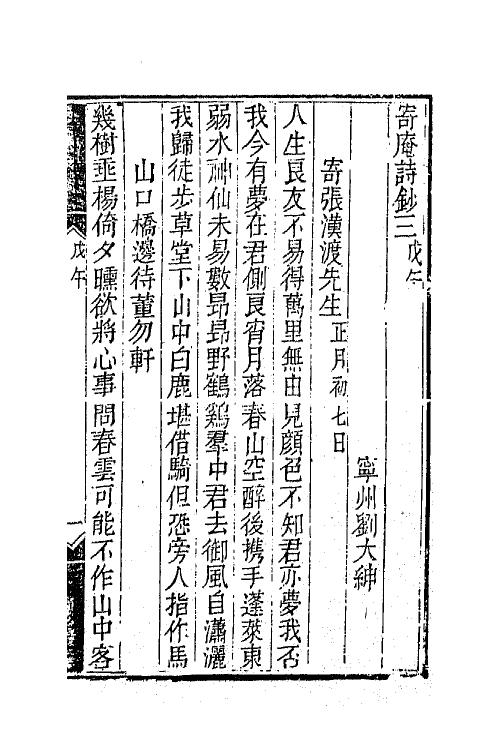 寄庵詩鈔三戊午
寧州劉大紳
寄張漢渡先生正月初七日
人生良友不易得萬里無由見顔色不知君亦夢我否
我今有夢在君側良宵月落春山空醉後携手蓬萊東
弱水神仙未易數昂昂野鶴鷄羣中君去御風自瀟灑
我歸徒步草堂下山中白鹿堪借騎但恐旁人指作馬
山口橋邊待董勿軒
幾樹垂楊倚夕曛欲將心事問春雲可能不作山中客
戊午
一